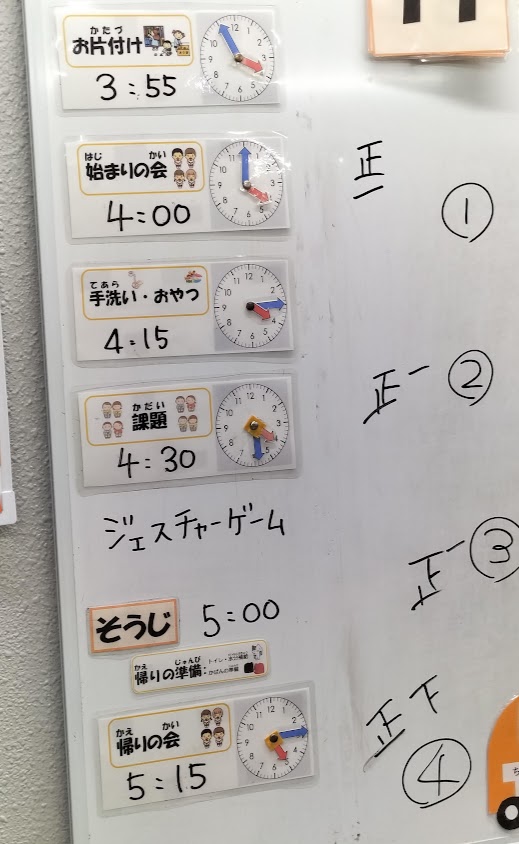 かたづ
お片付け
3:55
はじ かい
始まりの会
4:00
正
①
てあら
手洗い・おやつ
4:15
正一
②
かだい
課題
4:30
ジェスチャーゲーム
正一
③
そうじ 5:00
かえ じゅんび
帰りの準備:
かえ かい
帰りの会
5:15
正下
④